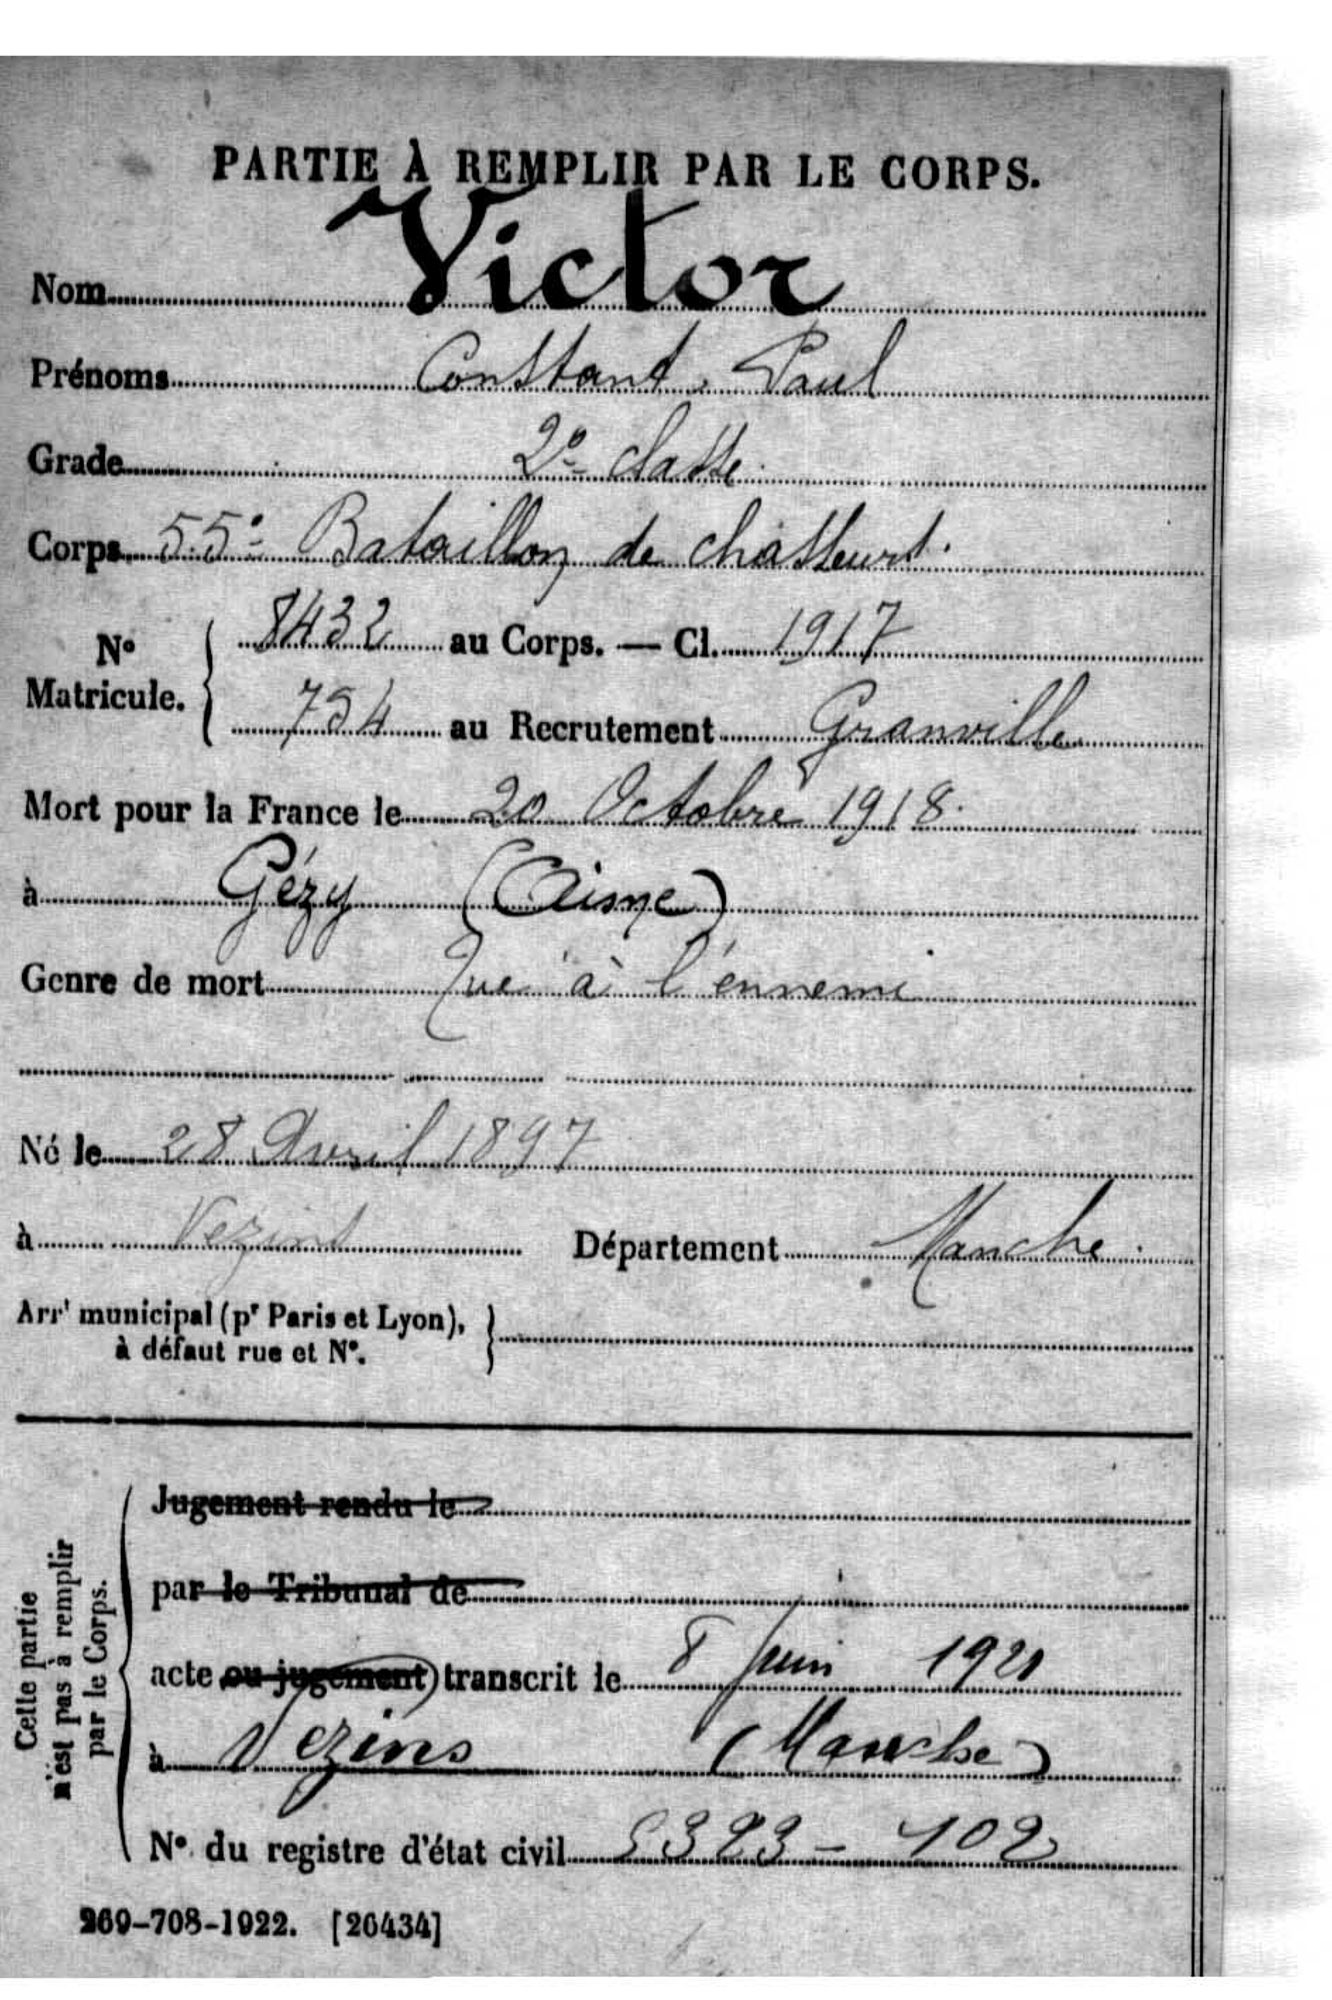 PARTIE À REMPLIR PAR LE CORPS.
Nom Victor
Prénoms Constant, Paul
Grade 2e classe
Corps 55e Bataillon de chasseurs.
No Matricule. { 8432 au Corps. — Cl. 1917
754 au Recrutement Granville
Mort pour la France le 20 Octobre 1918.
à Gézy (Aisne)
Genre de mort Tué à l'ennemi
Né le 28 Avril 1897
à Vezins Département Manche.
Arrt municipal (pr Paris et Lyon), }
à défaut rue et N°.
Cette partie
n'est pas à remplir
par le Corps.
Jugement rendu le
par le Tribunal de
acte ou jugement transcrit le 8 Juin 1921
à Vezins (Manche)
N° du registre d'état civil 102
269-708-1922. [26434]